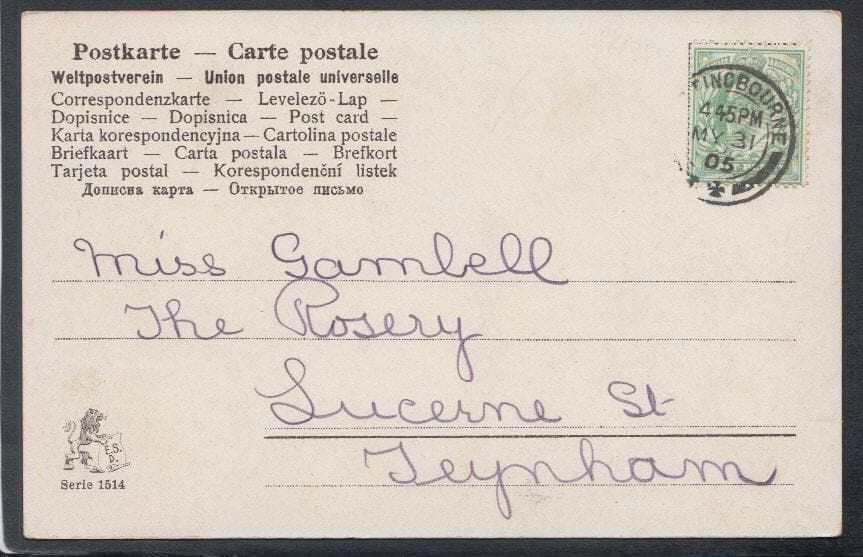 Postkarte — Carte postale
Weltpostverein — Union postale universelle
Correspondenzkarte — Levelezö-Lap —
Dopisnice — Dopisnica — Post card —
Karta korespondencyjna — Cartolina postale
Briefkaart — Carta postala — Brefkort
Tarjeta postal — Korespondenční listek
Дописна карта — Открытое письмо
TINGBOURNE
4.45PM
MY 31
05
Miss Gambell
The Rosery
Lucerne St
Teynham
E.S.
D.
Serie 1514